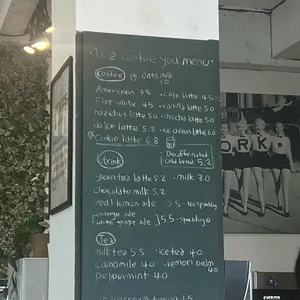 cookie you menu
coffee @ oats milk
1.0
Americano 3.8 • cafe latte 4.5
Flat white 4.5 • vanilla latte 5.0
hazelnut latte 5.0 • mocha latte 5.0
dolce latte 5.2 • ice cream latte 6.0
Cookie latte 6.8
Decaffeinated
cold brew 5.2
drink
latte 5.2 • milk 3.0
chocolate milk 5.2
real lemon ade 5.5 - No sparkling
orange ade
ade 5.5 - sparkling o
Tea
milk tea 5.5 • iced tea 4.0
camomile 4.0 • lemon balm
4.0
peppermint 4.0
1.5
ORK